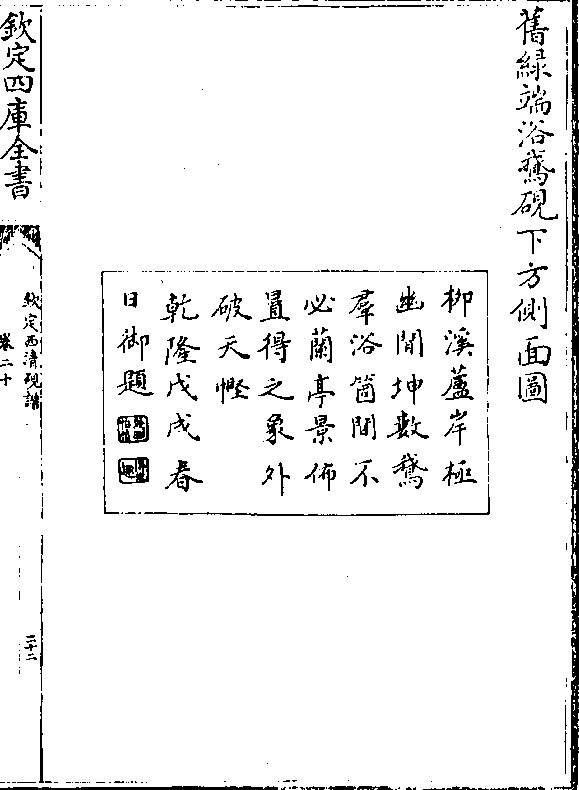 舊綠端浴鵞硯下方側面圖
柳溪蘆岸極
幽閒坤數鵞
羣浴箇間不
必蘭亭景佈
置得之象外
破天慳
乾隆戊戌春
日御題
欽定四庫全書
欽定西清硯譜
卷二十
二十二